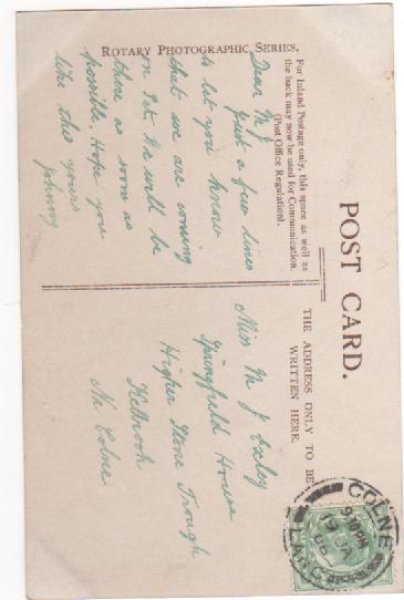 ROTARY PHOTOGRAPHIC SERIES.
POST CARD.
For Inland Postage only, this space as well as
the back may now be used for Communication.
(Post Office Regulation).
THE ADDRESS ONLY TO BE
WRITTEN HERE.
Dear M J
Just a few lines
to let you know
that we are coming
on Sat. We will be
there as soon as
possible. Hope you
like this yours
Johnny
Miss M J Exley
Springfield House
Higher Stone Trough
Kelbrook
Nr Colne
COLNE
9.10PM
LANCS